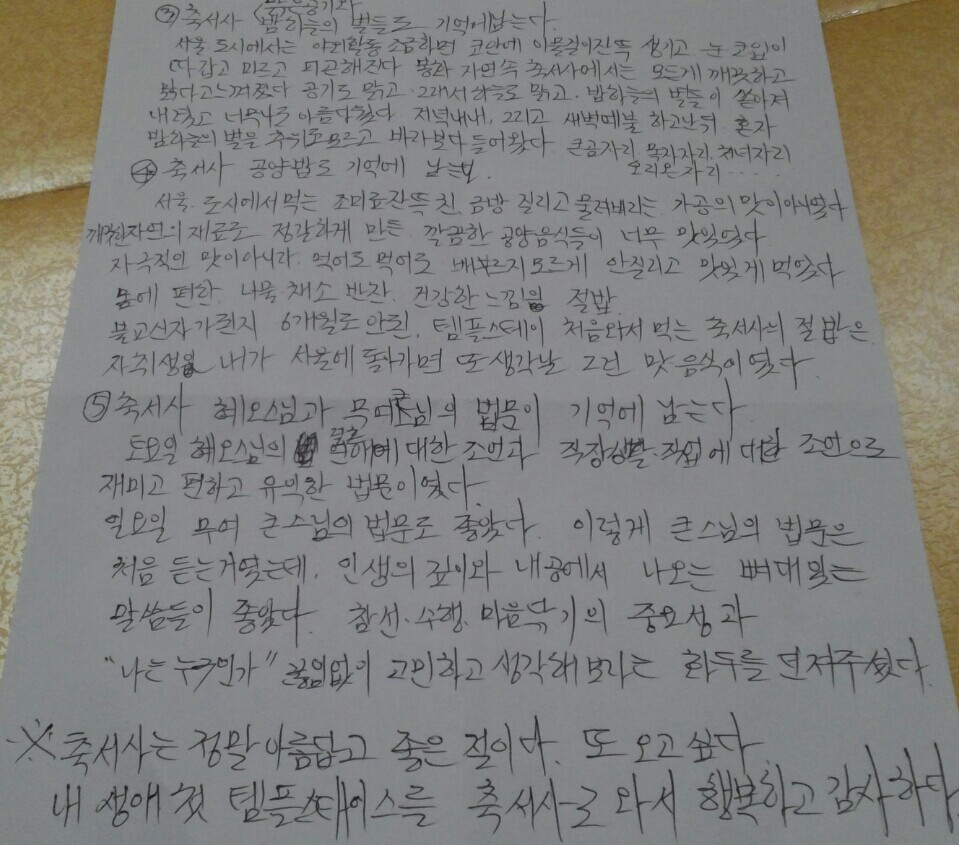 ③ 축서사 (맑은공기와 밤하늘의 별들도 기억에남는다.
서울 도시에서는 야외활동 조금하면 코안에 이물질이잔뜩 생기고 눈 코 입이
따갑고 마르고 피곤해진다 봉화 자연속 축서사에서는 모든게 깨끗하고
맑다고느껴졌다 공기도 맑고 그래서 하늘도 맑고. 밤하늘의 별들이 쏟아져
내렸고 너무나도 아름다웠다 저녁내내, 그리고 새벽예불 하고난뒤 혼자
밤하늘의 별을 추위도모르고 바라보다 들어왔다. 큰곰자리. 목자자리. 처녀자리
오리온자리 ·····
④ 축서사 공양밥도 기억에 남는다.
서울. 도시에서먹는 조미료잔뜩 친 금방 질리고 물려버리는 가공의 맛이아니였다
깨끗한자연의 재료로 정갈하게 만든. 깔끔한 공양음식들이 너무 맛있었다
자극적인 맛이아니라. 먹어도 먹어도 배부르지모르게 안질리고 맛있게 먹었다
몸에 편한. 나물 채소 반찬. 건강한 느낌의 절밥.
불교신자가된지 6개월도 안된, 템플스테이 처음와서 먹는 축서사의 절밥은
자취생인 내가 서울에 돌아가면 또 생각날 그런 맛·음식이였다
⑤ 축서사 혜오스님과 무여큰스님의 법문이 기억에 남는다
토요일 혜오스님의 연애에 대한 조언과 직장생활·직업에 대한 조언으로
재미고 편하고 유익한 법문이였다.
일요일 무여 큰스님의 법문도 좋았다. 이렇게 큰스님의 법문은
처음 듣는거였는데, 인생의 깊이와 내공에서 나오는 뼈대있는
말씀들이 좋았다. 참선·수행·마음닦기의 중요성과
"나는 누구인가" 끊임없이 고민하고 생각해보라는 화두를 던져주셨다.
※ 축서사는 정말아름답고 좋은 절이다. 또 오고 싶다.
내 생애 첫 템플스테이스를 축서사로 와서 행복하고 감사하다.